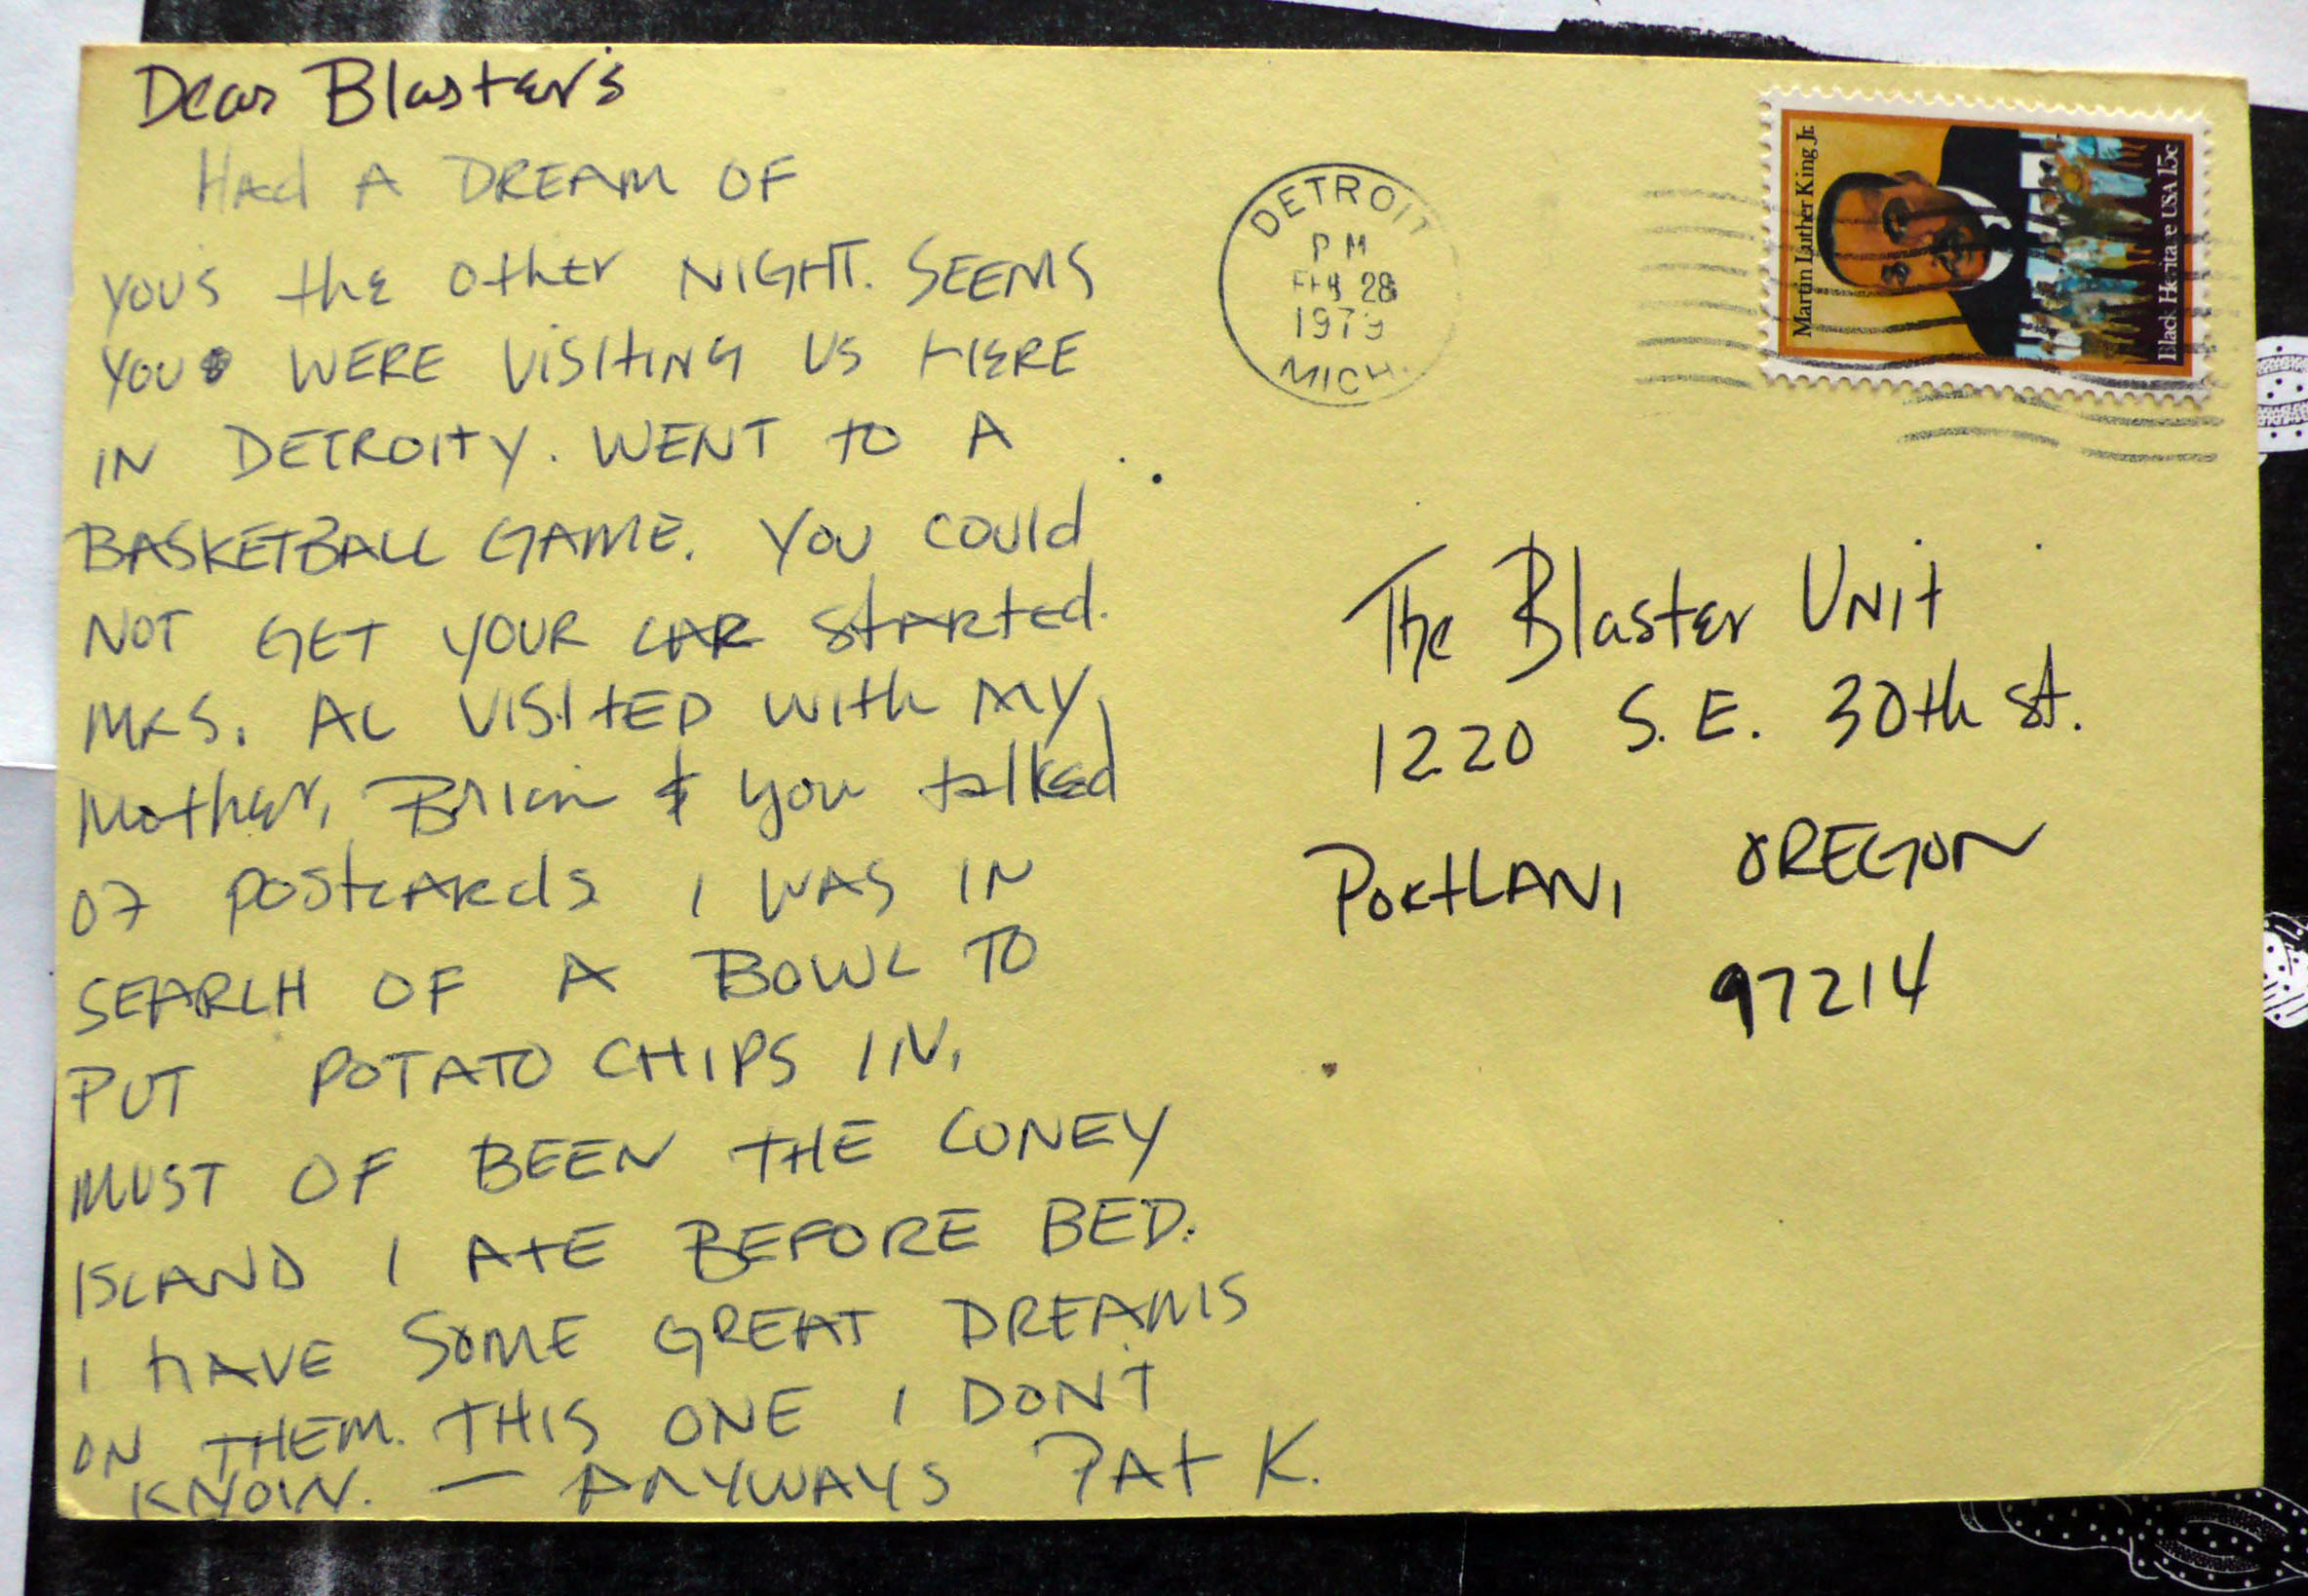 Dear Blaster's
HAd A DREAM OF
YOU'S thE OthEr NIGHT. SEEMS
YOU WERE VISItING US HERE
IN DETROITY. WENT tO A
BASKETBALL GAME. YOU COUld
NOT GET YOUR CAR StARtEd.
MRS. AL VISItED WIth MY
MothEr, Brian & you talkEd
OF POStCARdS I WAS IN
SEARCH OF A BOWL TO
PUT POTATO CHIPS IN.
MUST OF BEEN THE CONEY
ISLAND I AtE BEFORE BED.
I HAVE SOME GREAT DREAMS
ON THEM. THIS ONE I DON'T
KNOW. — ANYWAYS PAt K.
DETROIT
PM
FEB 28
1979
MICH.
Martin Luther King Jr.
Black Heritage USA 15c
The BlastEr UNit
1220 S.E. 30th St.
PORtLAN, OREGON
97214